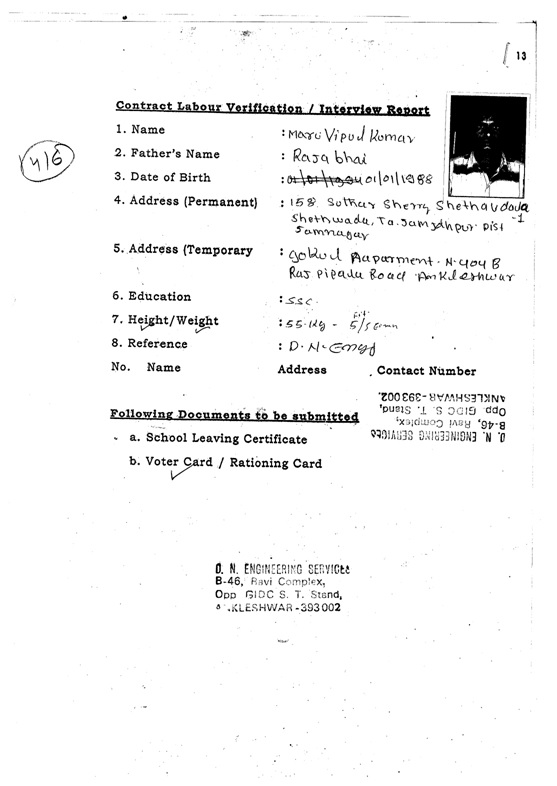 13
Contract Labour Verification / Interview Report
416
1. Name : Maru Vipul Kumar
2. Father's Name : Raja bhai
3. Date of Birth : 01/01/1988
4. Address (Permanent) : 158 Suthar Sherry Shethavdala -1
Shethwada, Ta. Jamjdhpur Dist
Jamnagar
5. Address (Temporary : gokul Aaparment - N-404 B
Raj pipala Road Ankleshwar
6. Education : SSC.
7. Height/Weight : 55-kg - 5/5
8. Reference : D. N.
No. Name Address Contact Number
D. N. ENGINEERING SERVICES
B-46, Ravi Complex,
Opp GIDC S. T. Stand,
ANKLESHWAR-393002.
Following Documents to be submitted
a. School Leaving Certificate
b. Voter Card / Rationing Card
D. N. ENGINEERING SERVICES
B-46, Ravi Complex,
Opp GIDC S. T. Stand,
KLESHWAR-393002